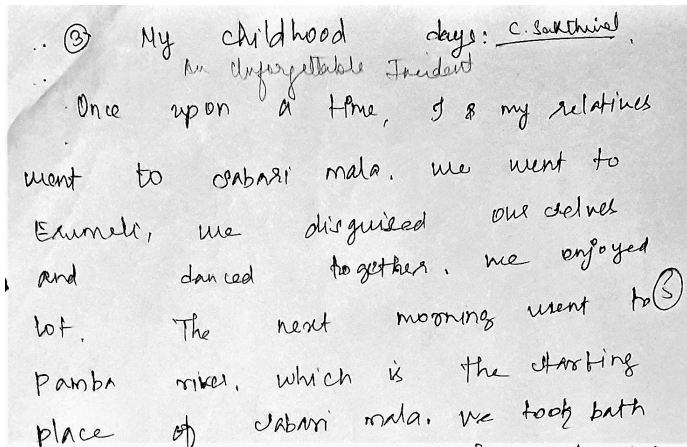 ③ My childhood days: C. Sakthivel.
An Unforgettable Incident
Once upon a time, I & my relatives
went to sabari mala. we went to
Erumeli, we disguised our selves
and danced together. we enjoyed
lot. The next morning went to ③
Pamba river, which is the starting
place of sabari mala. we took bath